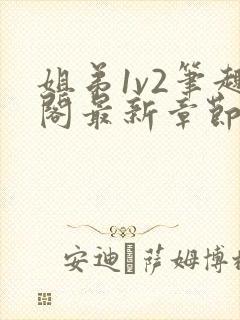 姐弟1v2筆趣
閣最新章節
安迪·薩姆博